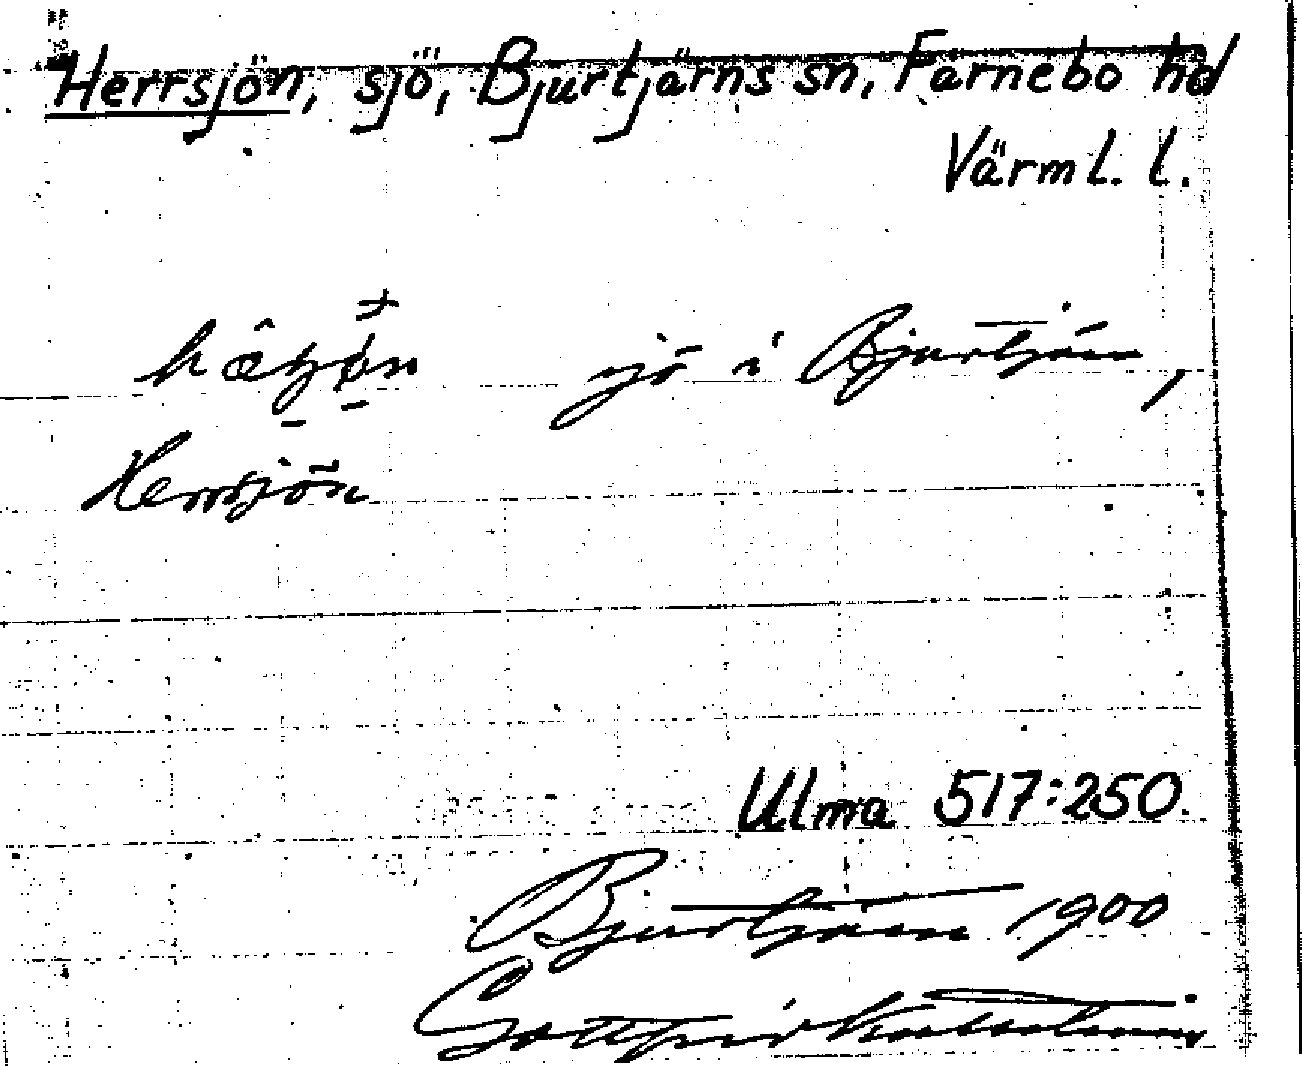 Herrsjön, sjö, Bjurtjärns sn, Färnebo hd
Värml. l.
sjö i Bjurtjärn,
Herrsjön
Ulma 517:250.
Bjurtjärn 1900
Gottfrid Kallstenius